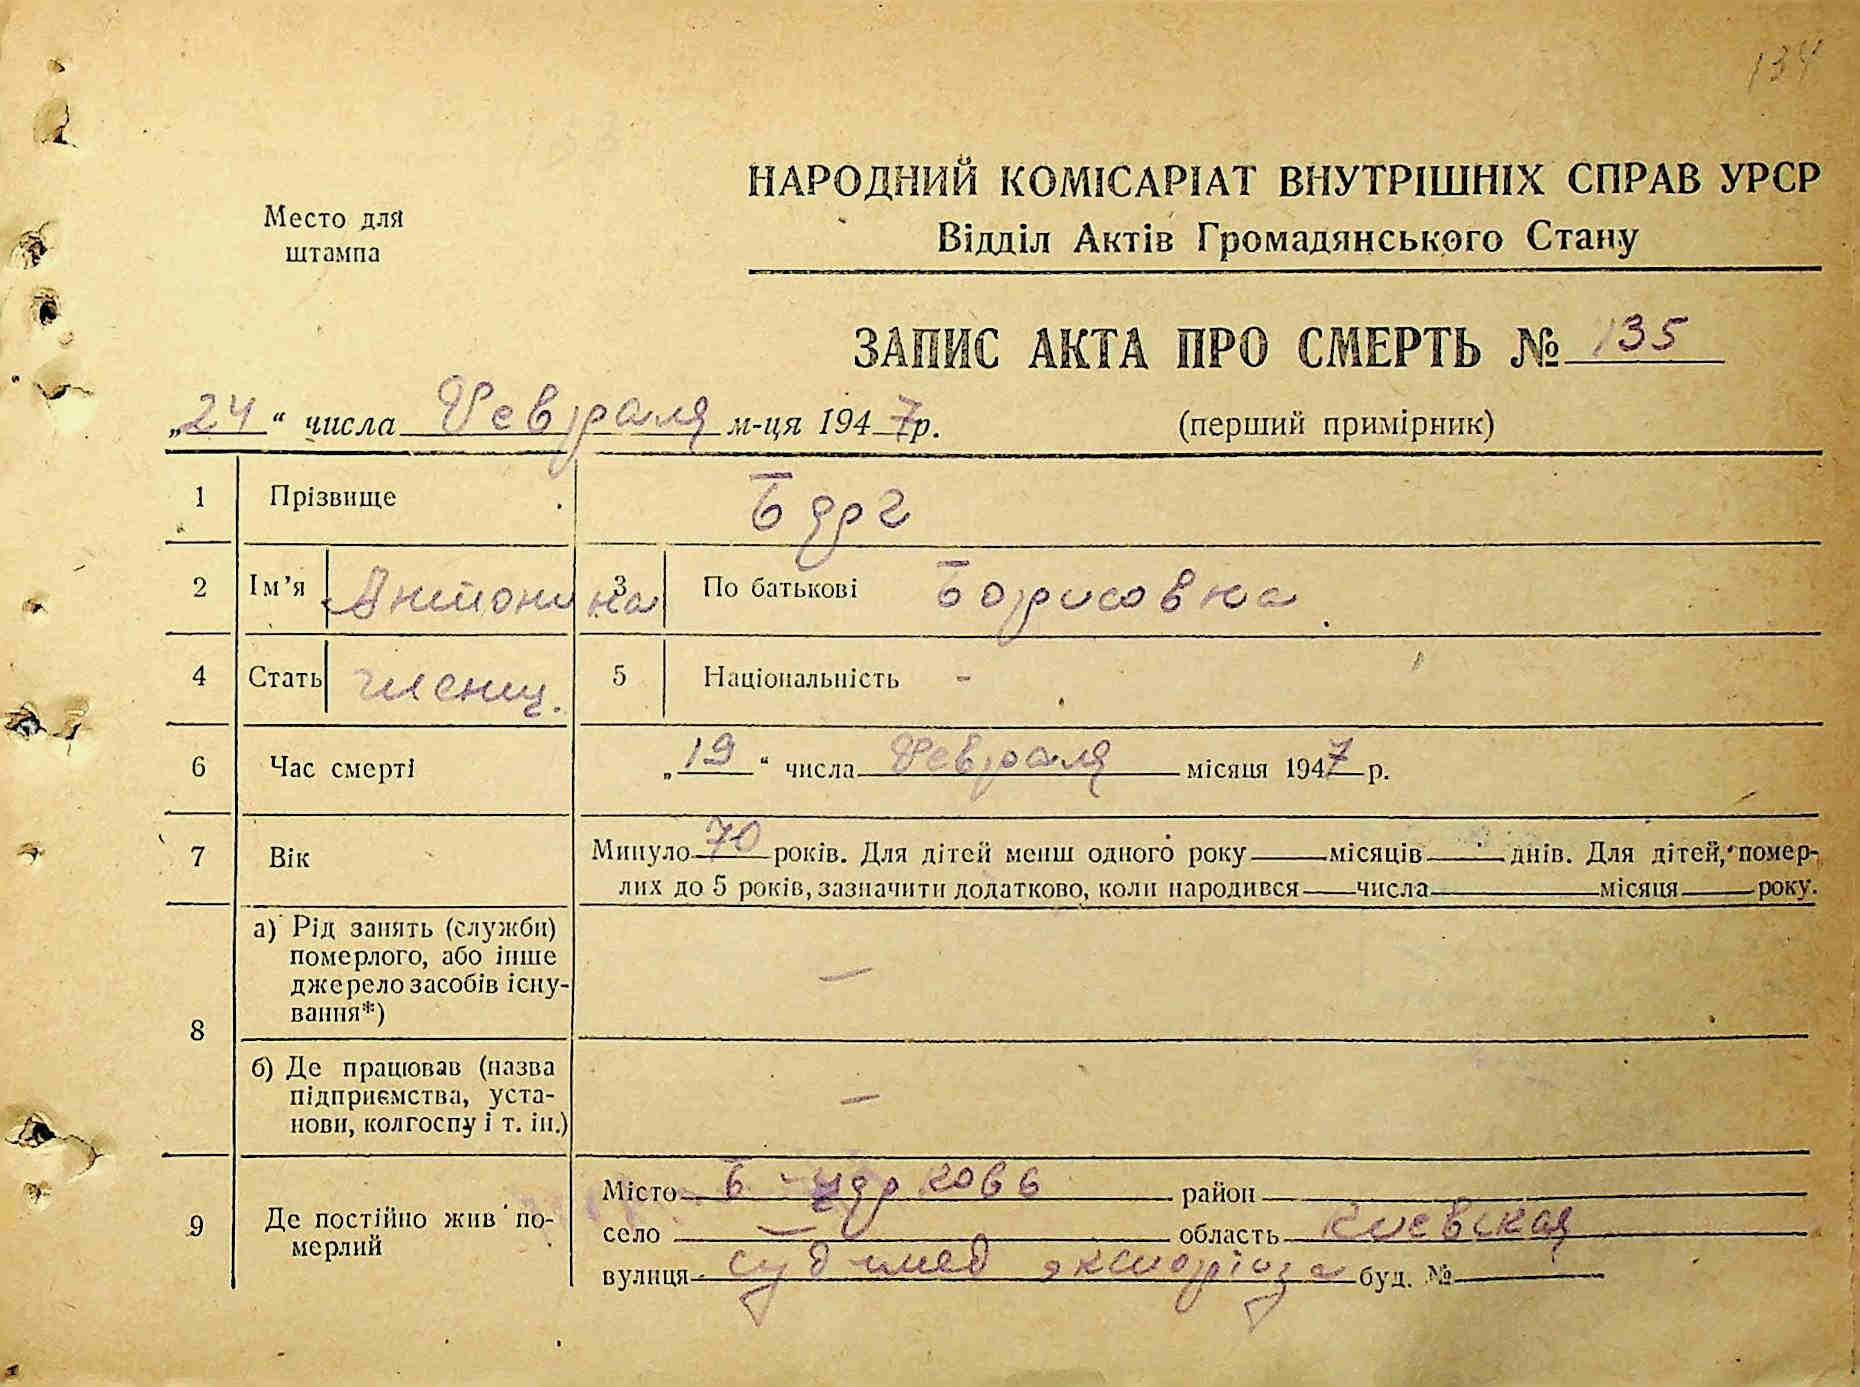 134
Место для
штампа
НАРОДНИЙ КОМІСАРІАТ ВНУТРІШНІХ СПРАВ УРСР
Відділ Актів Громадянського Стану
ЗАПИС АКТА ПРО СМЕРТЬ № 135
„24“ числа Февраля м-ця 1947 р. (перший примірник)
1 Прізвище
2 Ім’я Антонина 3 По батькові Борисовна
4 Стать женщ. 5 Національність -
6 Час смерті „19“ числа Февраля місяця 1947 р.
7 Вік Минуло 70 років. Для дітей менш одного року місяців днів. Для дітей, помер-
лих до 5 років, зазначити додатково, коли народився числа місяця року.
8 а) Рід занять (служби)
померлого, або інше
джерело засобів існу-
вання*) —
б) Де працював (назва
підприємства, уста-
нови, колгоспу і т. ін.) —
9 Де постійно жив по-
мерлий
Місто район
село — область Киевская
вулиця суд мед буд. №